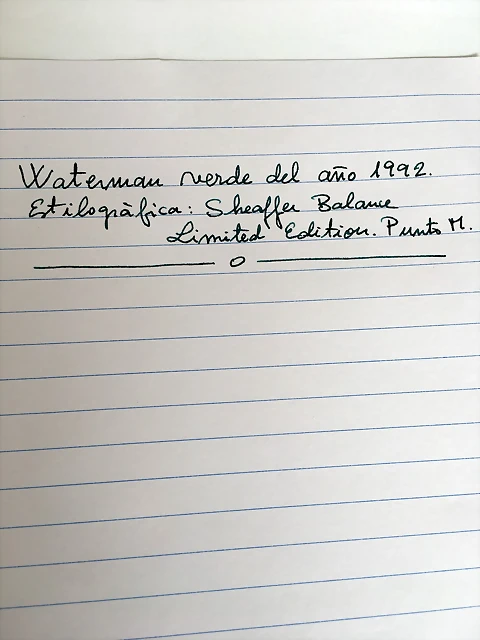 Waterman verde del año 1992.
Estilogràfica: Sheaffer Balance
Limited Edition. Punto M.